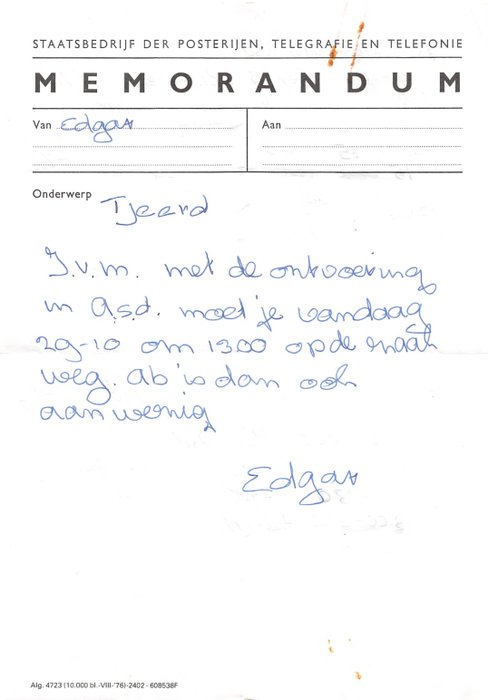 STAATSBEDRIJF DER POSTERIJEN, TELEGRAFIE EN TELEFONIE
MEMORANDUM
Van Edgar
Aan
Onderwerp Tjeerd
I.v.m. met de ontvoering
in A.s.d. moet je vandaag
29-10 om 1300 op de
weg. Ab is dan ook
aanwezig
Edgar
Alg. 4723 (10.000 bl.-VIII-'76)-2402 - 608538F